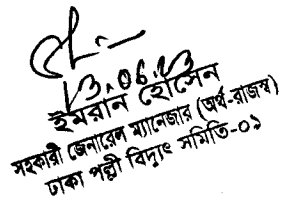 ইমরান হোসেন
সহকারী জেনারেল ম্যানেজার (অর্থ-রাজস্ব)
ঢাকা পল্লী বিদ্যুৎ সমিতি-০১